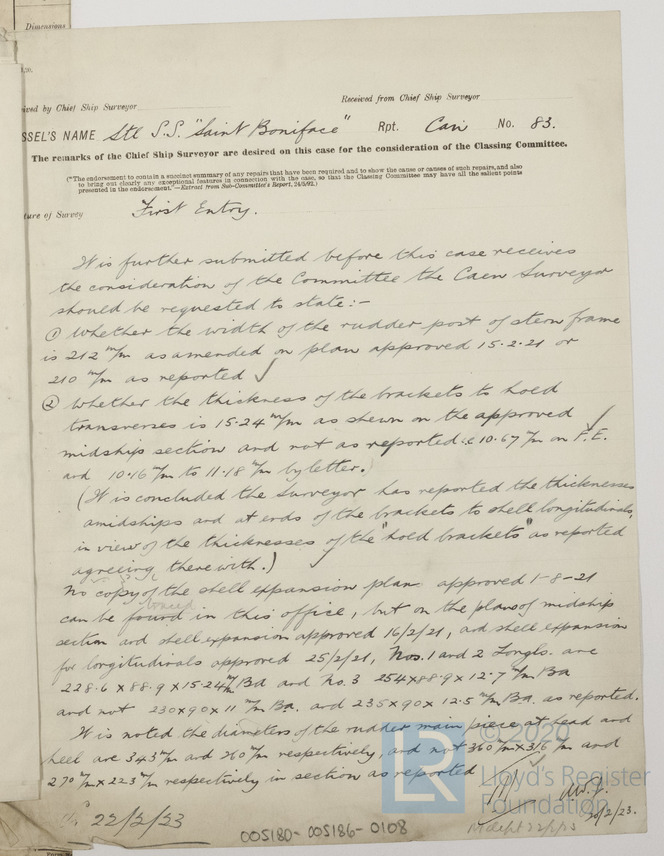 Dimensions
ived by Chief Ship Surveyor
Received from Chief Ship Surveyor
SSEL'S NAME Stl S.S. "Saint Boniface" Rpt. Caen No. 83.
The remarks of the Chief Ship Surveyor are desired on this case for the consideration of the Classing Committee.
(*The endorsement to contain a succinct summary of any repairs that have been required and to show the cause or causes of such repairs, and also
to bring out clearly any exceptional features in connection with the case, so that the Classing Committee may have all the salient points
presented in the endorsement."—Extract from Sub-Committee's Report, 24/5/92.)
ture of Survey First Entry.
It is further submitted before this case receives
the consideration of the Committee the Caen Surveyor
should be requested to state:-
① Whether the width of the rudder post of stern frame
is 212 m/m as amended on plan approved 15.2.21 or
210 m/m as reported
② Whether the thickness of the brackets to hold
transverses is 15.24 m/m as shewn on the approved
midship section and not as reported i.e 10.67 m/m on F.E.
and 10.16 m/m to 11.18 m/m by letter.
(It is concluded the Surveyor has reported the thicknesses
amidships and at ends of the brackets to shell longitudinals,
in view of the thicknesses of the "hold brackets" as reported
agreeing therewith.)
No copy of the shell expansion plan approved 1-8-21
can be found in this office, but on the plans of midship
section and shell expansion approved 16/2/21, and shell expansion
for longitudinals approved 25/2/21, Nos. 1 and 2 Longls. are
228.6 x 88.9 x 15.24 m/m Ba and No. 3 254 x 88.9 x 12.7 m/m Ba
and not 230 x 90 x 11 m/m Ba. and 235 x 90 x 12.5 m/m Ba. as reported.
It is noted the diameters of the rudder main piece at head and
heel are 343 m/m and 260 m/m respectively, and not 360 m/m x 316 m/m and
270 m/m x 223 m/m respectively in section as reported
22/2/23
20/2/23.
005180-005186-0108
© 2020
Lloyd's Register
Foundation
LR